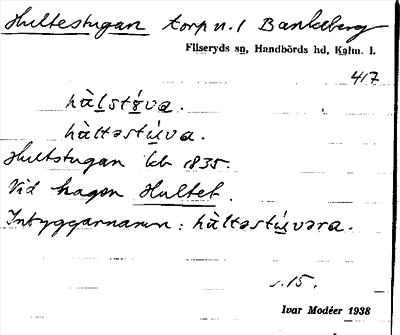 Hultestugan torp n. 1 Bankeberg
Fliseryds sn, Handbörds hd, Kalm. l.
417
hàlstúva.
hàltəstúva.
Hultstugan lib 1835.
Vid hagen Hultet.
Inbyggarnamn: hàltəstúvəra.
s. 15.
Ivar Modéer 1938